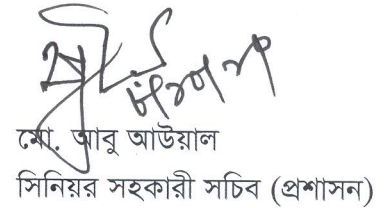 মো. আবু আউয়াল
সিনিয়র সহকারী সচিব (প্রশাসন)